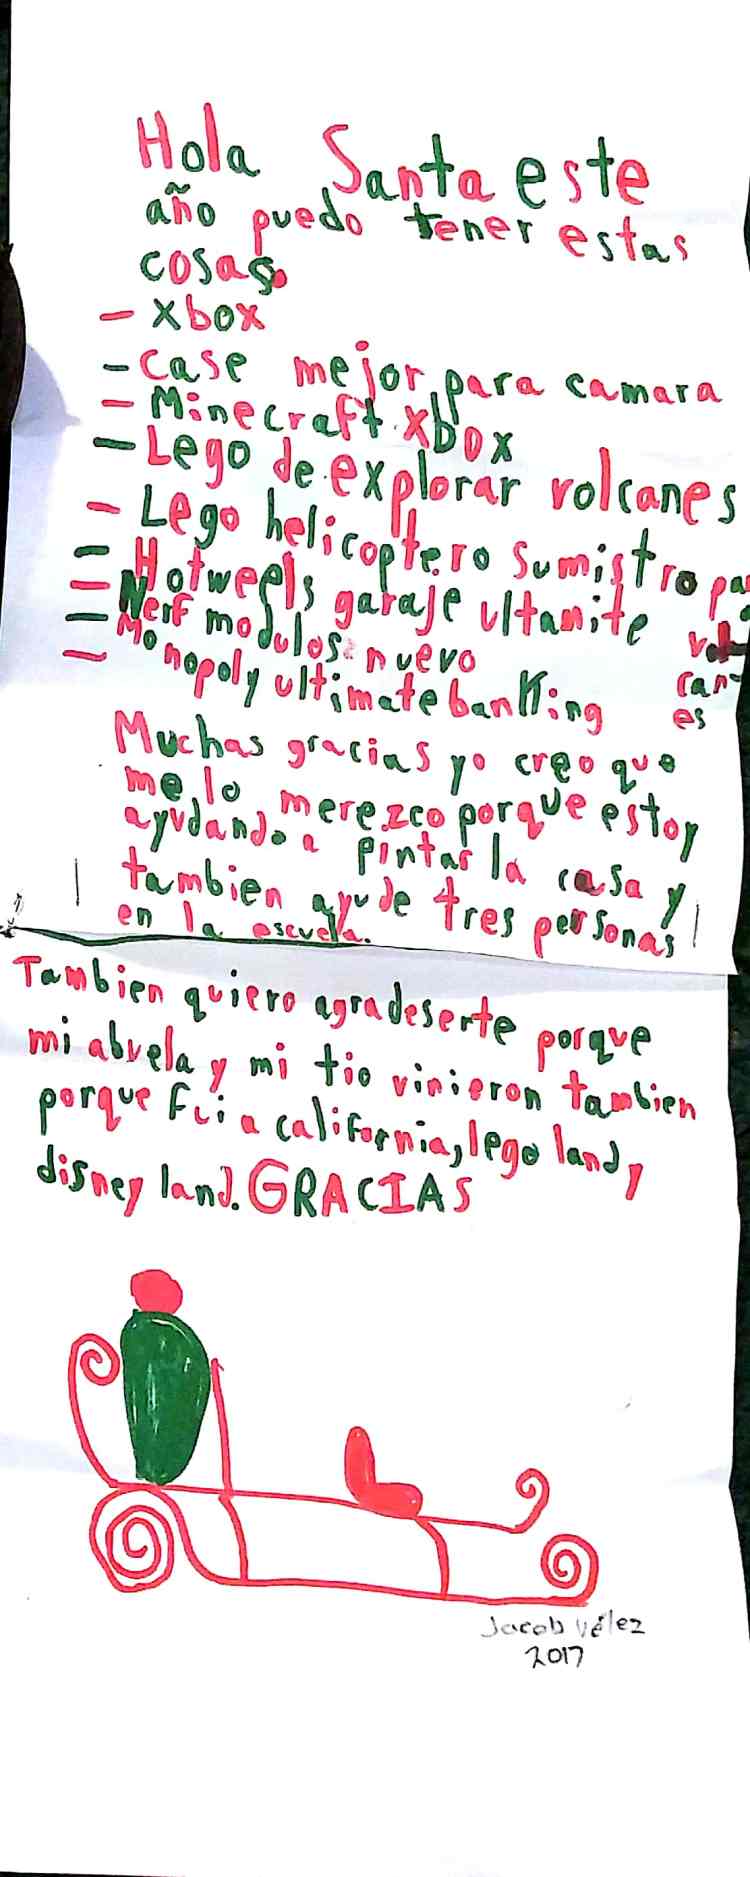 Hola Santa este
año puedo tener estas
cosas.
- xbox
- case mejor para camara
- Minecraft xbox
- Lego de explorar volcanes
- Lego helicoptero sumistro para
- Hotweels garaje ultamite vol
- Nerf modulos nuevo can-
- Monopoly ultimate banking es
Muchas gracias yo creo que
me lo merezco porque estoy
ayudando a pintar la casa y
tambien ayude tres personas
en la escuela.
Tambien quiero agradeserte porque
mi abuela y mi tio vinieron tambien
porque fui a california, lego land y
disney land. GRACIAS
Jacob Vélez
2017